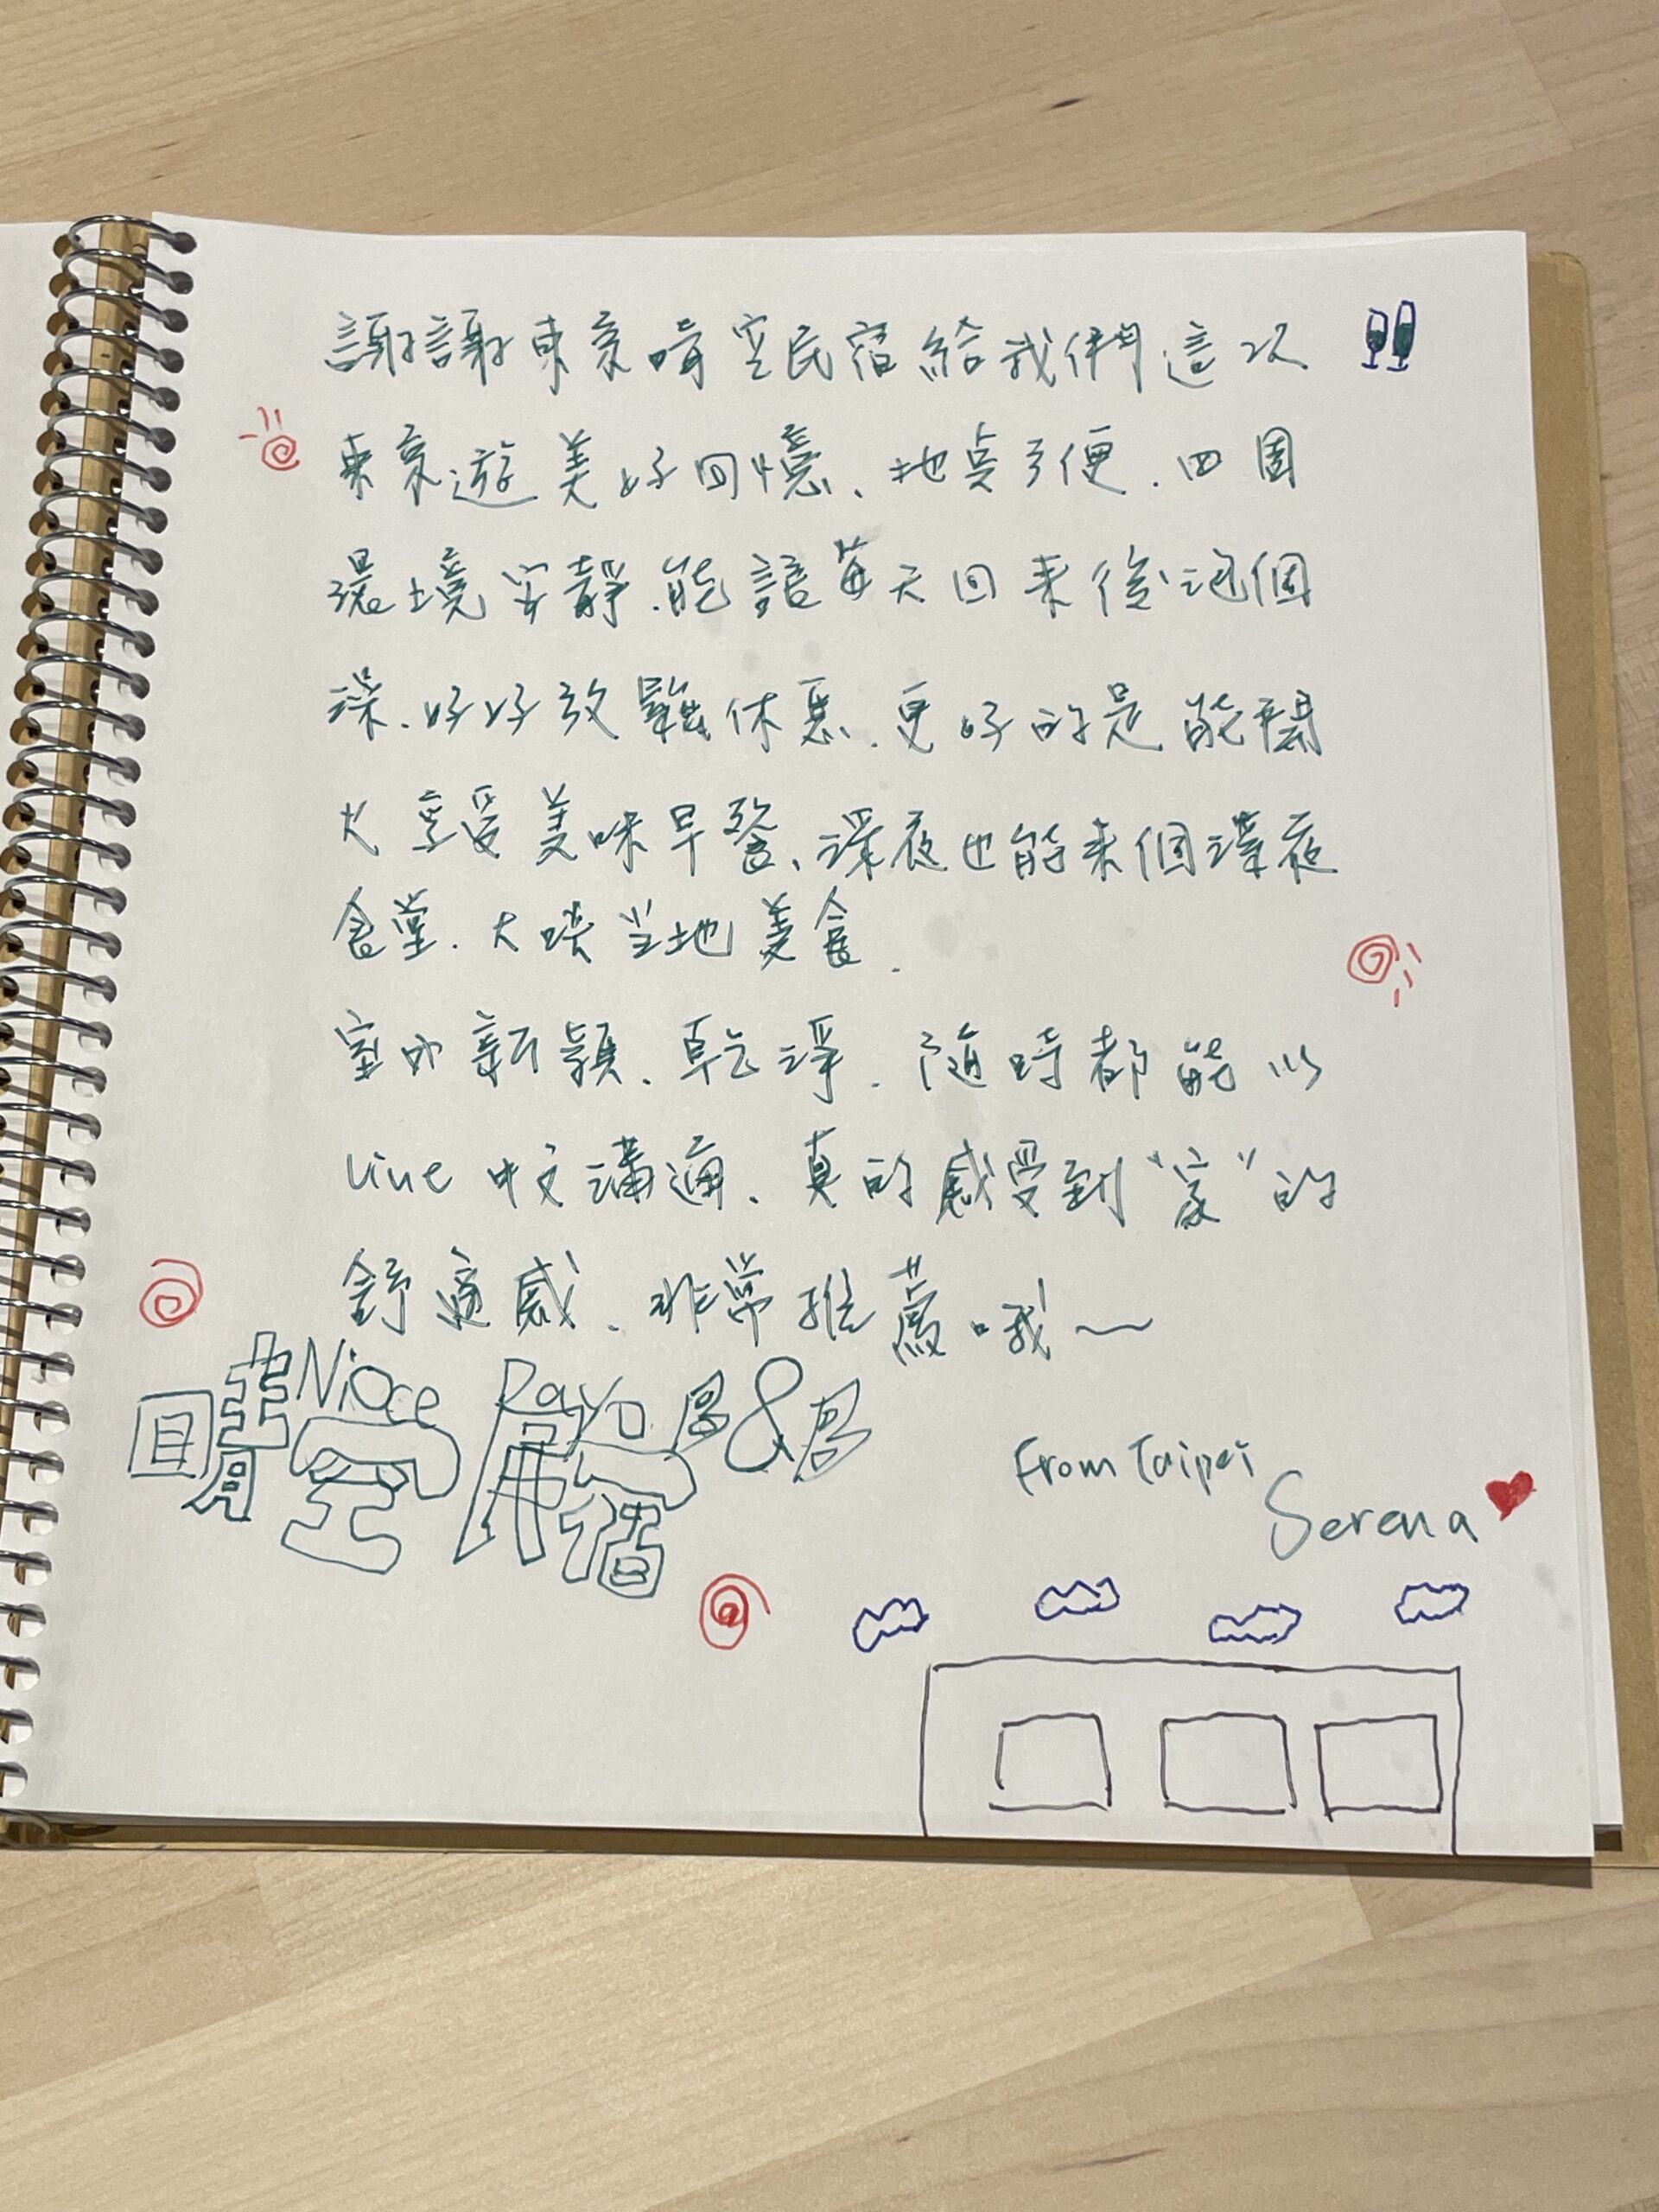 謝謝東京晴空民宿給我們這次
東京遊美好回憶、地點方便、四周
環境安靜、能讓每天回來後泡個
澡、好好放鬆休息、更好的是能開
火享受美味早餐、深夜也能來個深夜
食堂、大啖当地美食.
室內新穎、乾淨、隨時都能以
Line 中文溝通、真的感受到“家”的
舒適感、非常推薦哦~
晴空 民宿
From Taipei
Serena